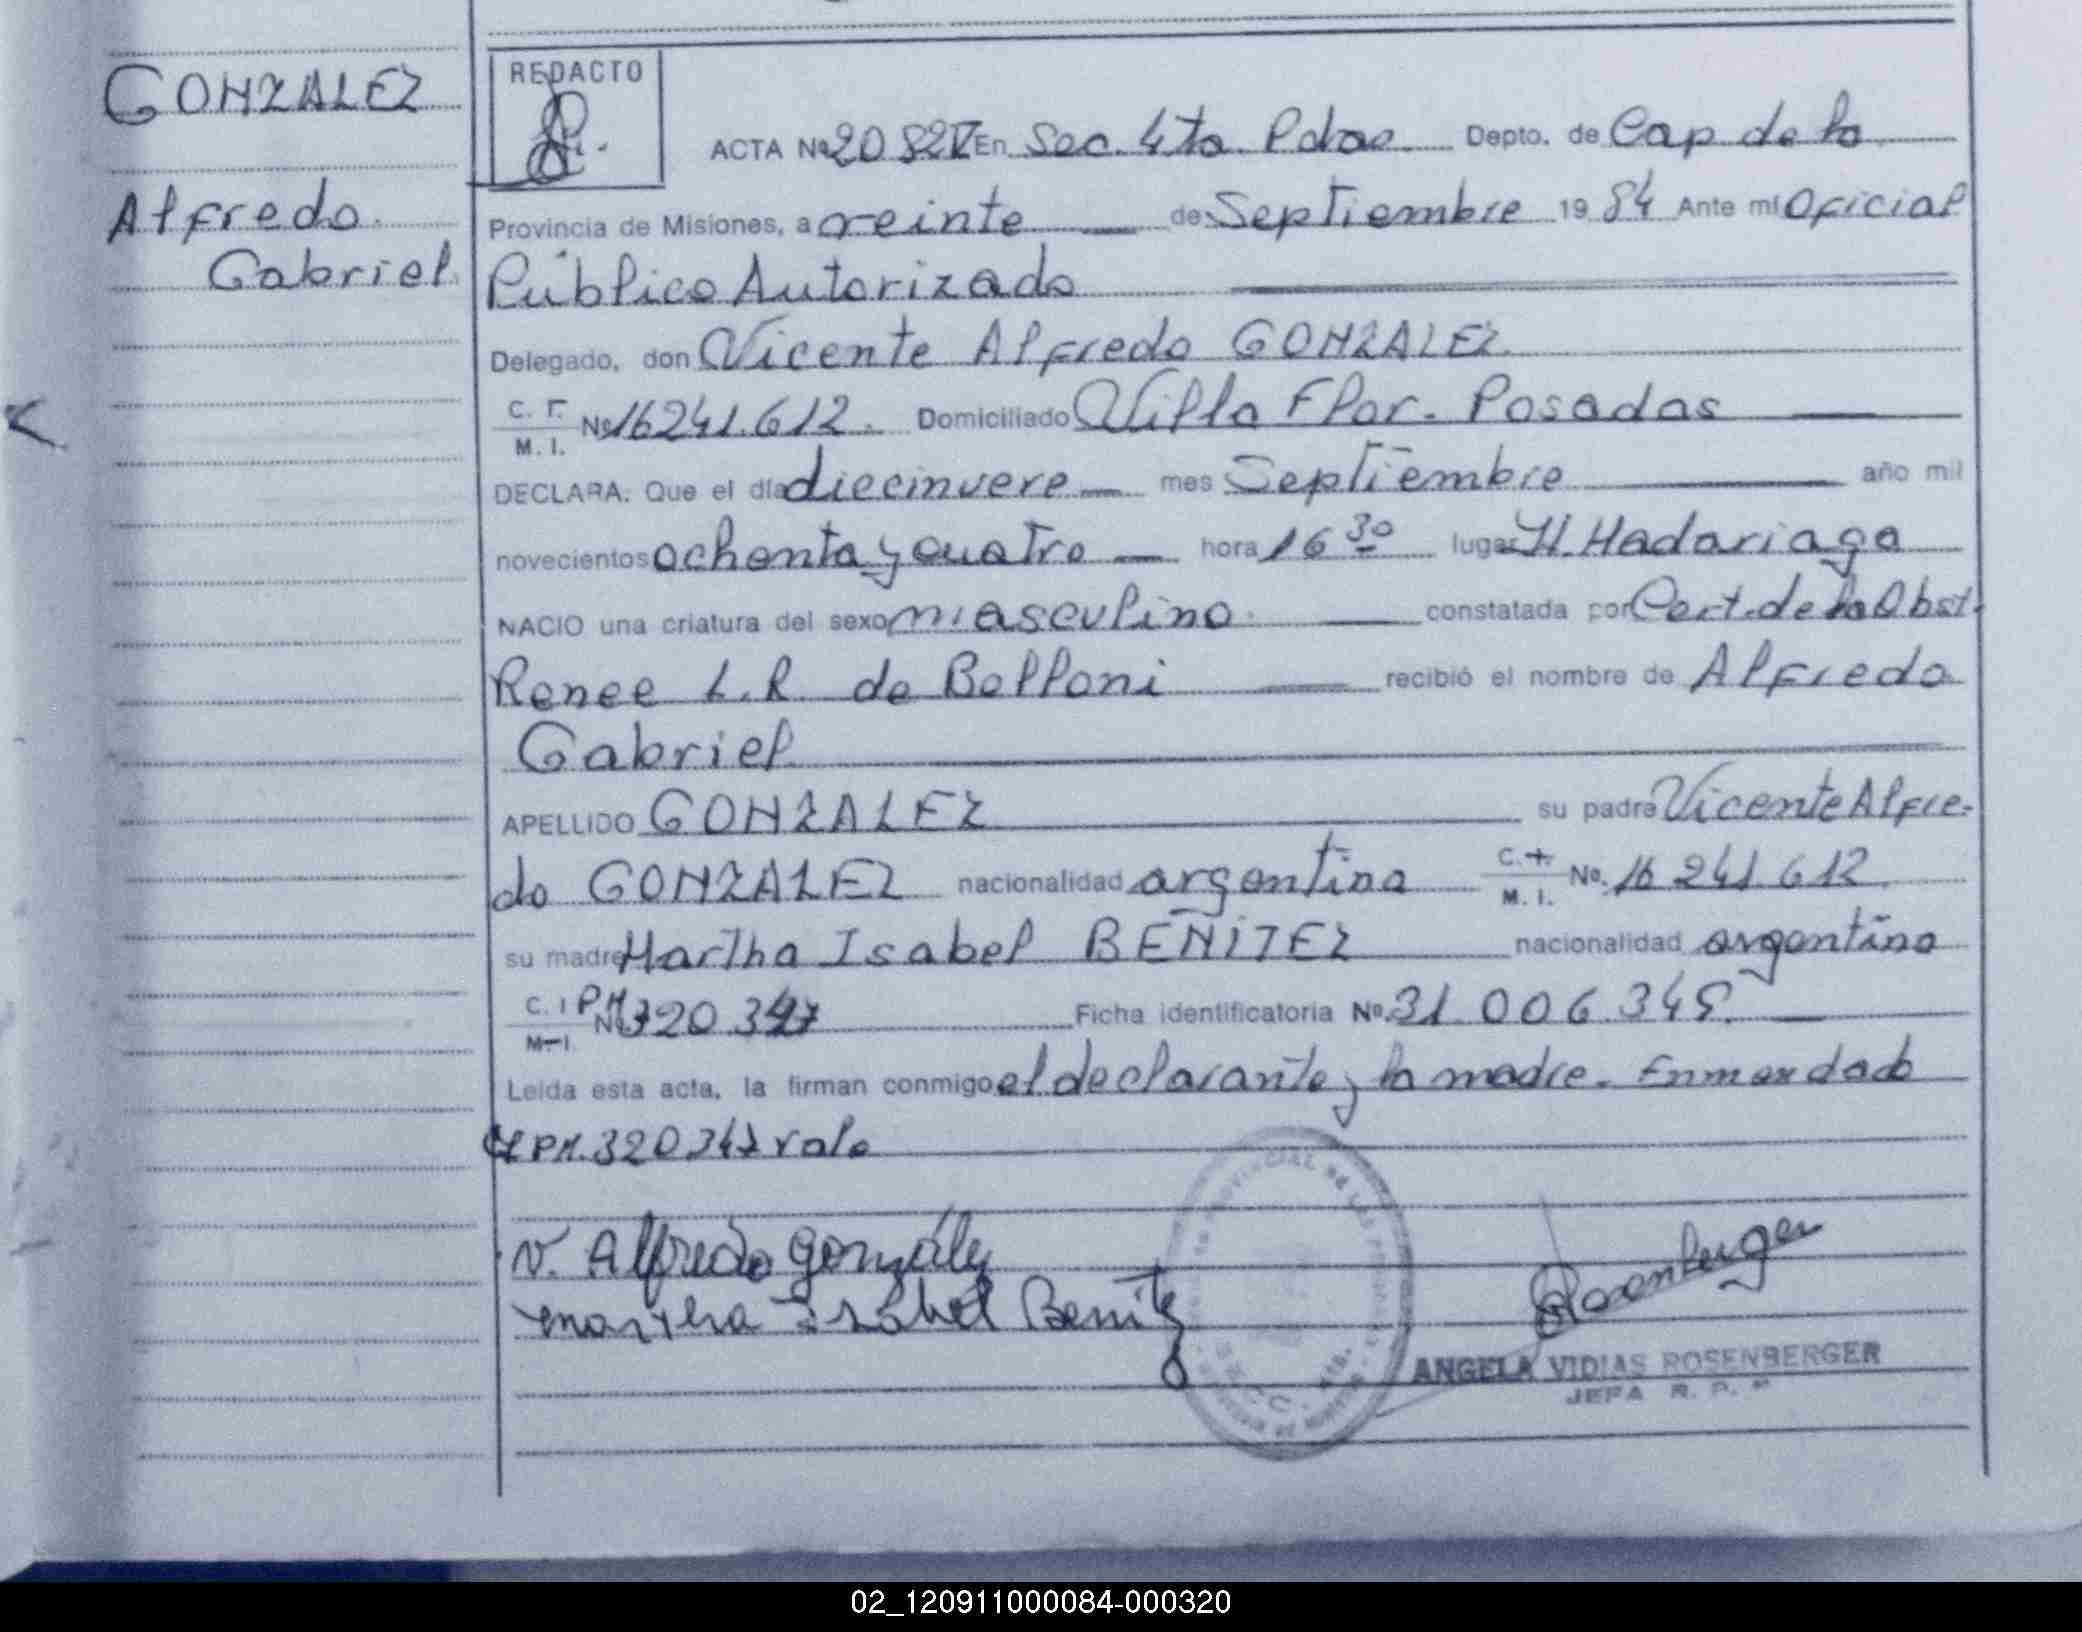 GONZALEZ
Alfredo
Gabriel
REDACTO
ACTA Nº 2082 V En Sec. 4ta. Pdas. Depto. de Cap de la
Provincia de Misiones, a veinte de Septiembre 19 84 Ante mi Oficial
Público Autorizado
Delegado, don Vicente Alfredo GONZALEZ
C. I.
M. I. Nº 16241.612. Domiciliado Villa Flor. Posadas
DECLARA: Que el día diecinueve mes Septiembre año mil
novecientos ochenta y cuatro hora 16 30 lugar H. Madariaga
NACIO una criatura del sexo masculino. constatada por Cert. de la Obst.
Renee L.R de Belloni recibió el nombre de Alfredo
Gabriel
APELLIDO GONZALEZ su padre Vicente Alfre-
do GONZALEZ nacionalidad argentina C. I.
M. I. No. 16 241 612
su madre Martha Isabel BENITEZ nacionalidad argentina
C. I PM
M. I. Nº 320 347 Ficha identificatoria Nº 31 006.345.
Leída esta acta, la firman conmigo el declarante y la madre. Enmendado
PM. 320.347 vale
V. Alfredo González
Martha Isabel Benitez
Rosenberger
ANGELA VIDIAS ROSENBERGER
JEFA R. P.
02_120911000084-000320